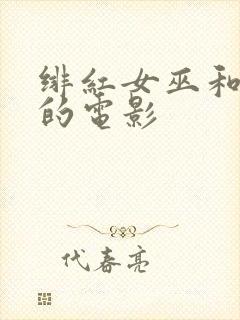 绯紅女巫和
的電影
代春亮